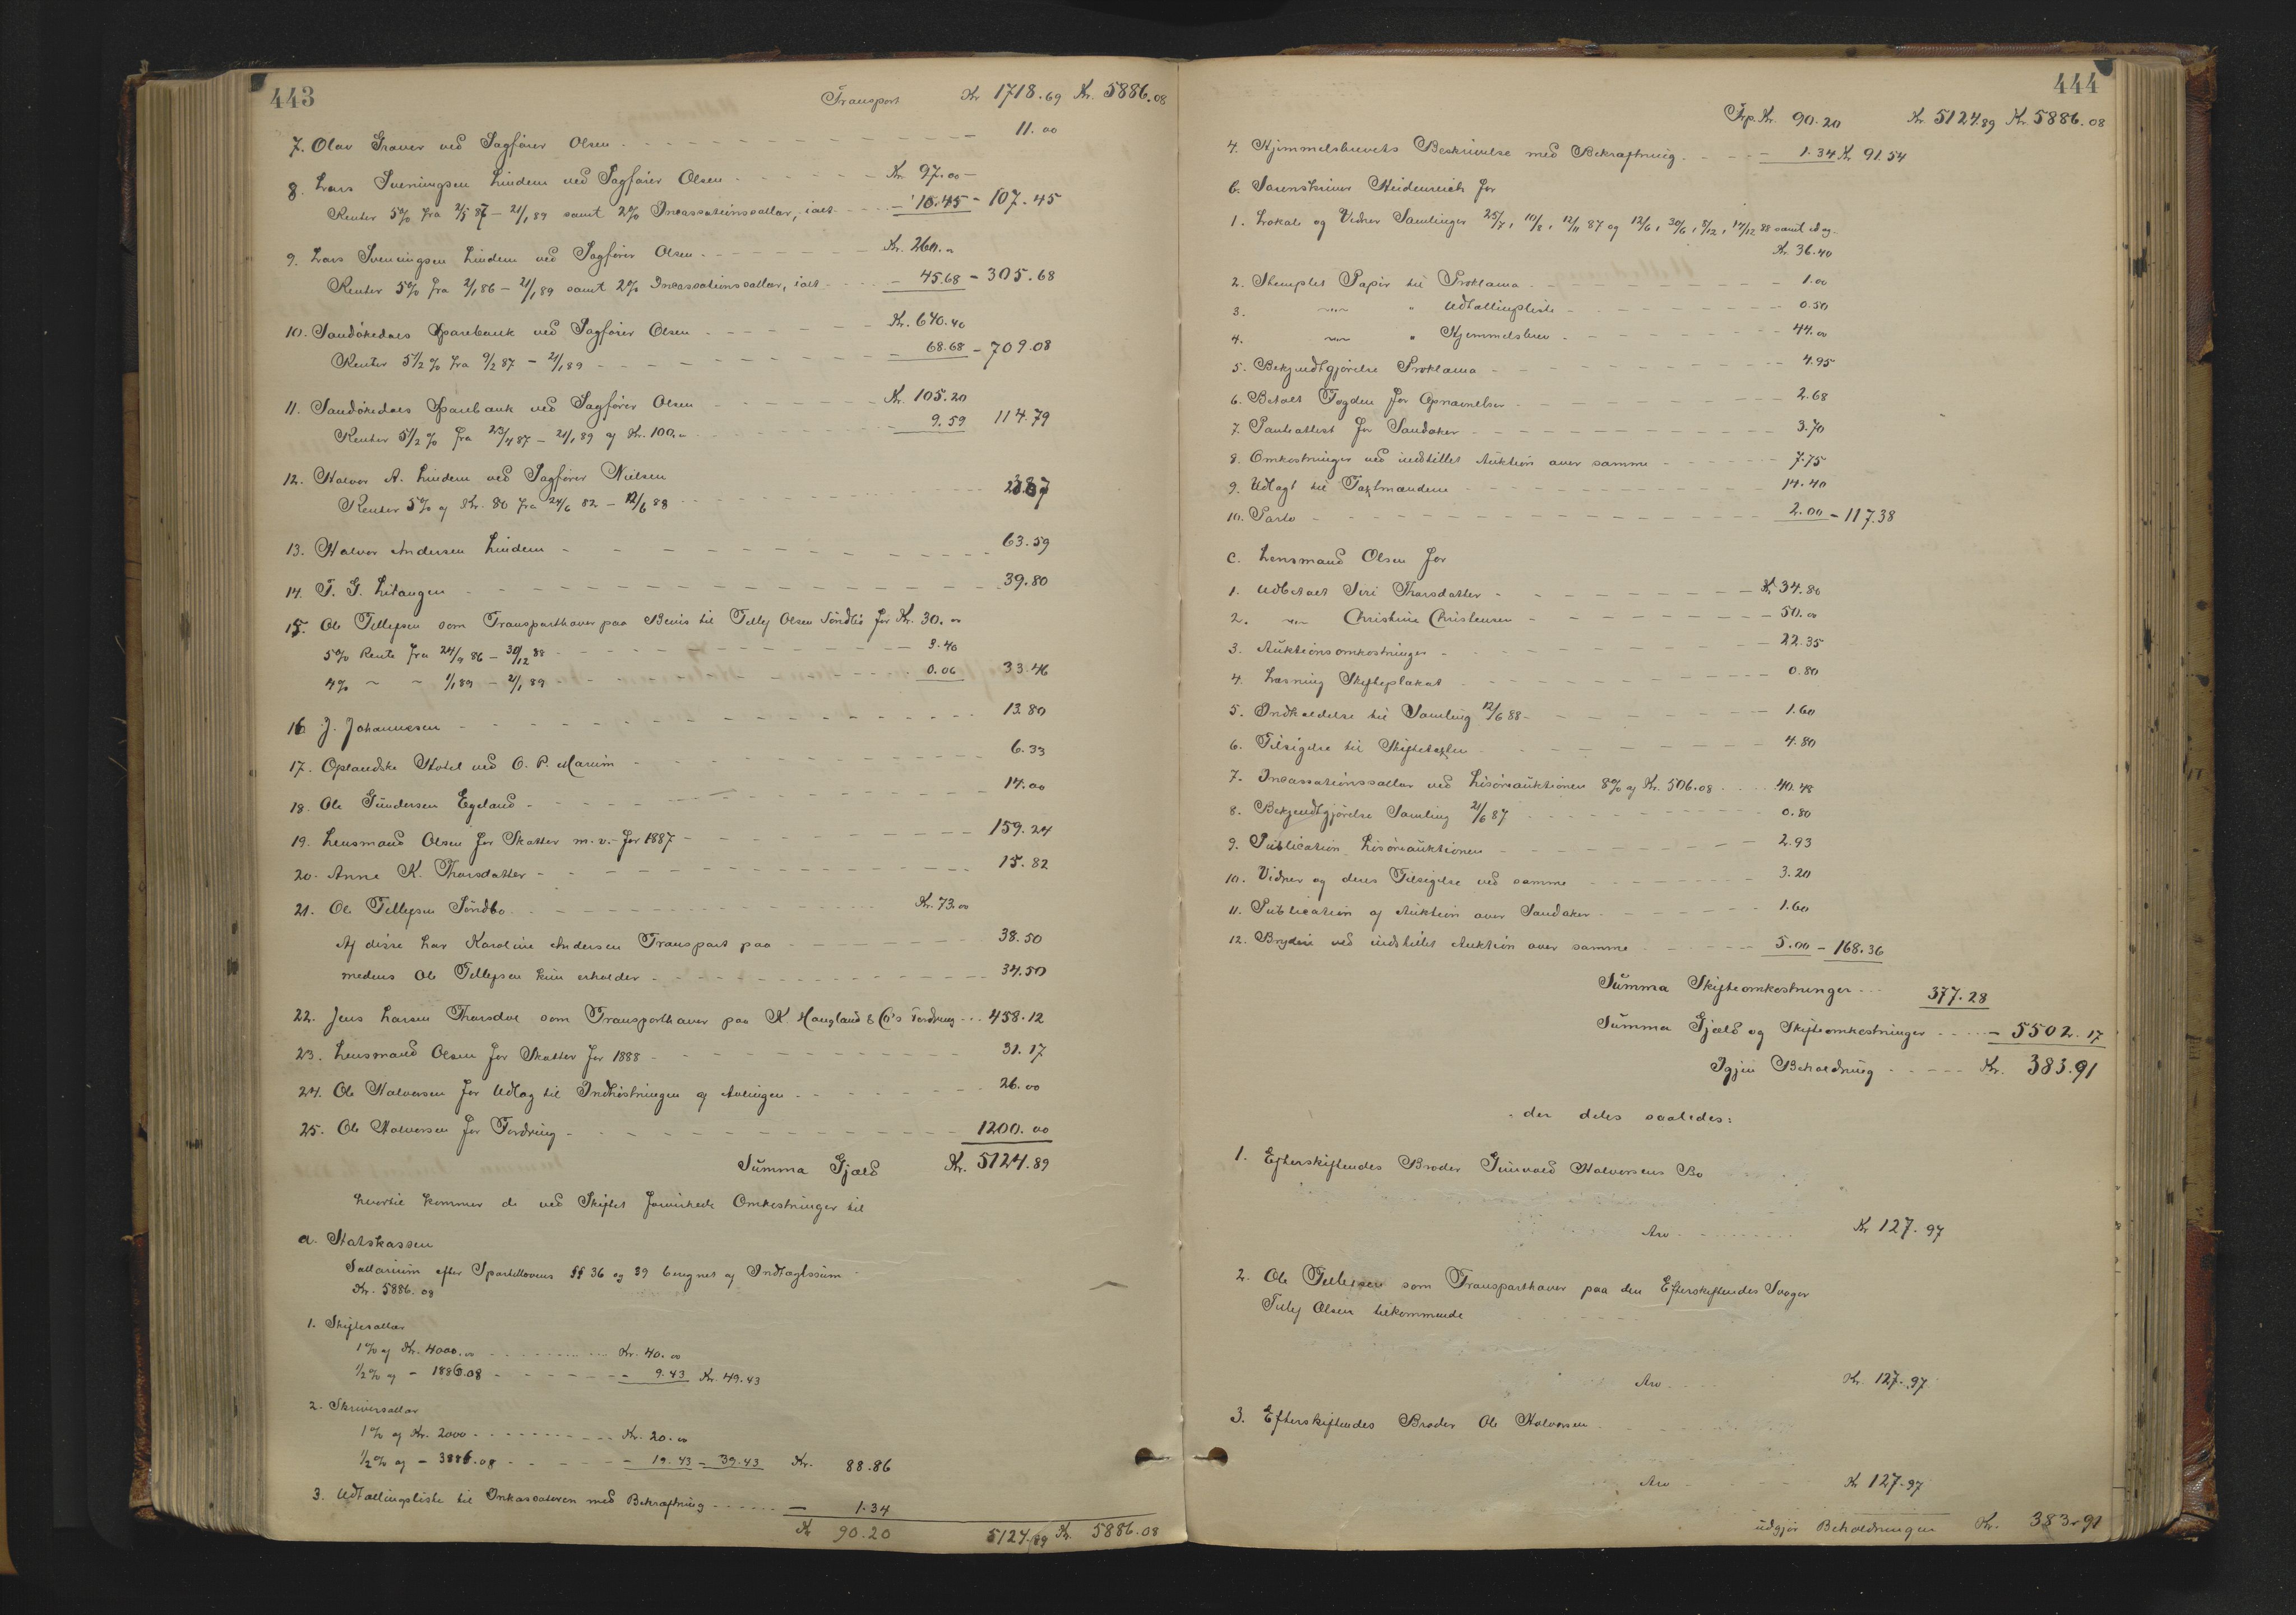 443
Transport Kr 1718.69 Kr. 5886.08
7. Olav Graver ved Sagfører Olsen - 11.00
8. Lars Sveningsen Lindem ved Sagfører Olsen Kr. 97.00
Renter 5% fra 2/5 87 - 21/1 89 samt 2% Incassationssallar, ialt - 10.45 - 107.45
9. Lars Sveningsen Lindem ved Sagfører Olsen Kr. 260.
Renter 5% fra 2/1 86 - 21/1 89 samt 2% Incassationssallar, ialt - 45.68 - 305.68
10. Sandökedals Sparebank ved Sagfører Olsen Kr. 640.40
Renter 5 1/2 % fra 9/2 87 - 21/1 89 - 68.68 - 709.08
11. Sandökedals Sparebank ved Sagfører Olsen Kr. 105.20
Renter 5 1/2 % fra 23/4 87 - 21/1 89 af Kr. 100. - 9.59 114.79
12. Halvor A. Lindem ved Sagfører Nielsen
Renter 5% af Kr. 80 fra 24/6 82 - 12/6 88
13. Halvor Andersen Lindem - 63.59
14. T. G. Litangen - 39.80
15. Ole Tellefsen som Transporthaver paa Bevis til Tellef Olsen Söndbö for Kr. 30.00
5% Rente fra 24/9 86 - 30/12 88 - 3.40
4% ~ ~ 1/1 89 - 21/1 89 - 0.06 33.46
16 J. Johannesen - 13.80
17. Oplandske Hotel ved O. P. Marum - 6.33
18. Ole Gundersen Egeland - 14.00
19. Lensmand Olsen for Skatter m.v. for 1887 - 159.24
20. Anne K. Thorsdatter - 15.82
21. Ole Tellefsen Söndbo Kr. 73.00
Af disse har Karoline Andersen Transport paa - 38.50
medens Ole Tellefsen kun erholder - 34.50
22. Jens Larsen Thorsdal som Transporthaver paa K. Haugland & Co's Fordring - 458.12
23. Lensmand Olsen for Skatter for 1888 - 31.17
24. Ole Halvorsen for Udlæg til Indhöstningen af Avlingen - 26.00
25. Ole Halvorsen for Fordring - 1200.00
Summa Gjæld Kr. 5124.89
hvortil kommer de ved Skiftet forvirkede Omkostninger til
a. Statskassen
Sallarium efter Sportellovens §§ 36 og 39 beregnet af Indtægtssum
Kr. 5886.08
1. Skiftesallar
1% af Kr. 4000.00 Kr. 40.00
1/2 % af - 1886.08 - 9.43 Kr. 49.43
2. Skriversallar
1% af Kr. 2000 Kr. 20.00
1/2 % af - 3886.08 - 19.43 - 39.43 Kr. 88.86
3. Udtællingsliste til Inkassatoren med Bekræftning - 1.34
Kr 90.20 5124.89 Kr. 5886.08
444
Trp. Kr. 90.20 Kr. 5124.89 Kr. 5886.08
4. Hjemmelsbrevets Beskrivelse med Bekræftning - 1.34 Kr 91.54
b. Sorenskriver Heidenreich for
1. Lokale og Vidner Samlinger 25/7, 10/8, 12/11 87 og 12/6, 30/6, 8/12, 14/12 88 samt idag
Kr. 36.40
2. Stemplet Papir til Proklama - 1.00
3. " Udtællingsliste - 0.50
4. " Hjemmelsbrev - 44.00
5. Bekjendtgjörelse Proklama - 4.95
6. Betalt Fogden for Opnævnelser - 2.68
7. Panteattest for Sandaker - 3.70
8. Omkostninger ved indstillet Auktion over samme - 7.75
9. Udlagt til Taxtmændene - 14.40
10. Porto - 2.00 - 117.38
c. Lensmand Olsen for
1. Udbetalt Siri Thorsdatter - Kr 34.80
2. Christine Christensen - 50.00
3. Auktionsomkostninger - 22.35
4. Læsning Skifteplakat - 0.80
5. Indkaldelse til Samling 12/6 88 - 1.60
6. Tilsigelse til Skiftetaxten - 4.80
7. Incassationssallar ved Lösöreauktionen 8% af Kr. 506.08 40.48
8. Bekjendtgjörelse Samling 21/6 87 0.80
9. Publication Lösöreauktionen - 2.93
10. Vidner og deres Tilsigelse ved samme - 3.20
11. Publication af Auktion over Sandaker - 1.60
12. Bryderi ved indstillet Auktion over samme - 5.00 - 168.36
Summa Skifteomkostninger 377.28
Summa Gjæld og Skifteomkostninger - 5502.17
Igjen Beholdning Kr. 383.91
der deles saaledes:
1. Efterskiftendes Broder Gunvald Halvorsens Bo
Arv Kr 127.97
2. Ole Tellefsen som Transporthaver paa den Efterskiftendes Svoger
Tellef Olsen tilkommende
Arv Kr. 127.97
3. Efterskiftendes Broder Ole Halvorsen
Arv Kr 127.97
udgjør Beholdningen Kr. 383.91